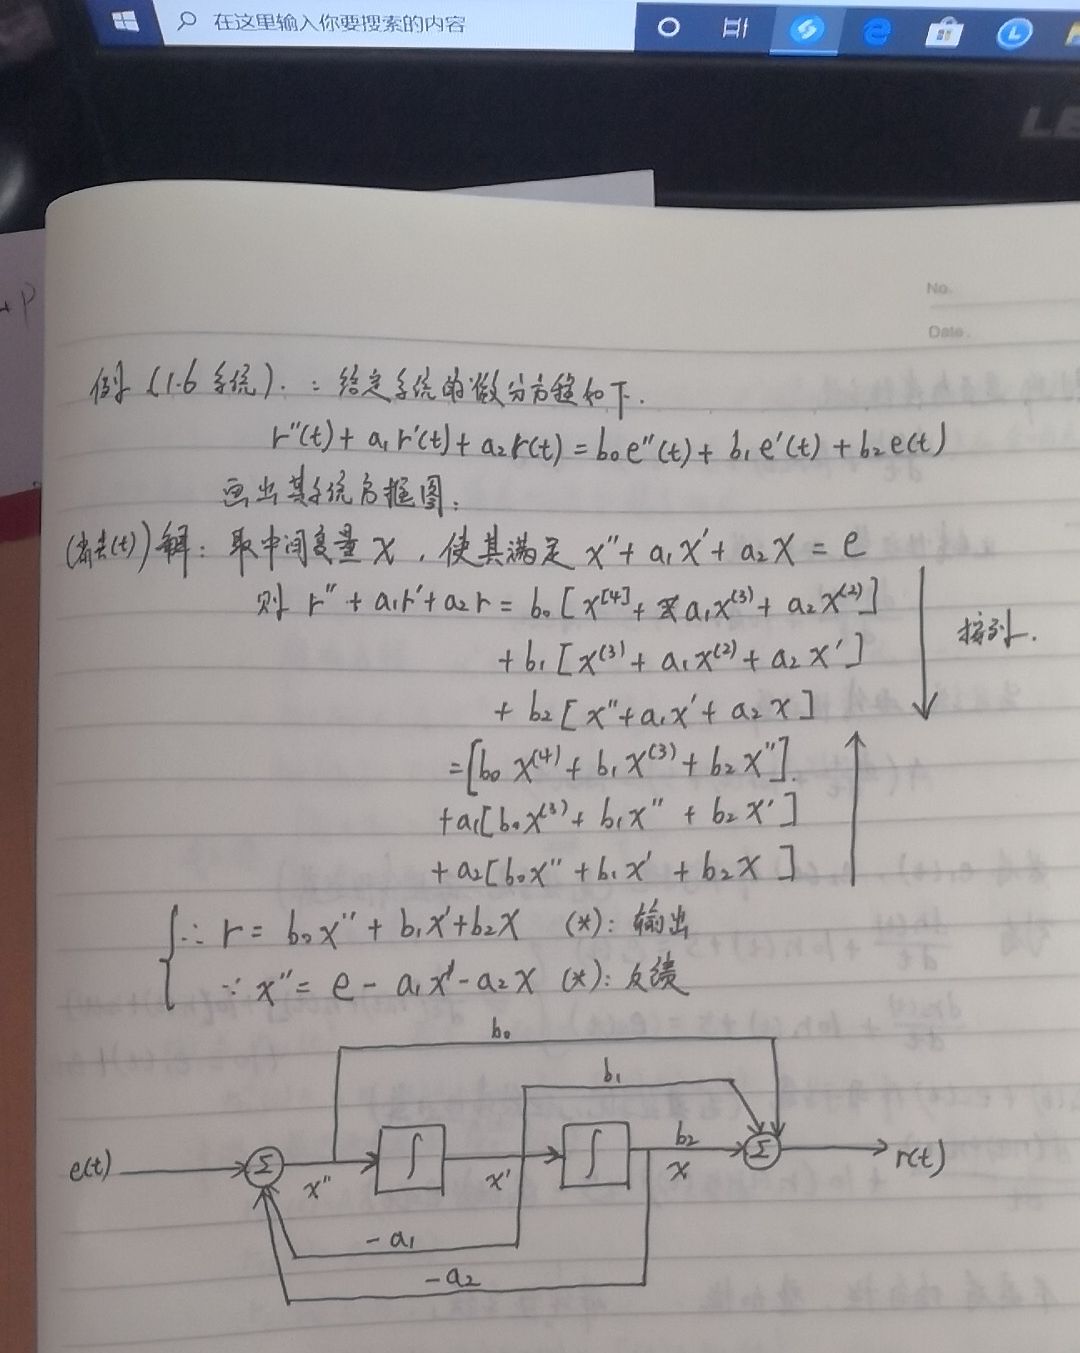 在这里输入你要搜索的内容
LE
+P
No.
Date.
例 (1.6 系统). : 给定系统的微分方程如下.
r''(t) + a₁r'(t) + a₂r(t) = b₀e''(t) + b₁e'(t) + b₂e(t)
画出其系统方框图:
(省去(t)) 解: 取中间变量 x , 使其满足 x'' + a₁x' + a₂x = e
则 r'' + a₁r' + a₂r = b₀[x^[4] + a₁x^(3) + a₂x^(2)]
+ b₁[x^(3) + a₁x^(2) + a₂x']
按列.
+ b₂[x'' + a₁x' + a₂x]
=[b₀x^(4) + b₁x^(3) + b₂x''].
+a₁[b₀x^(3) + b₁x'' + b₂x']
+ a₂[b₀x'' + b₁x' + b₂x]
∴ r = b₀x'' + b₁x' + b₂x (*): 输出
∵ x'' = e - a₁x' - a₂x (*): 反馈
b₀
b₁
e(t) Σ x'' ∫ x' ∫ b₂ x Σ r(t)
-a₁
-a₂